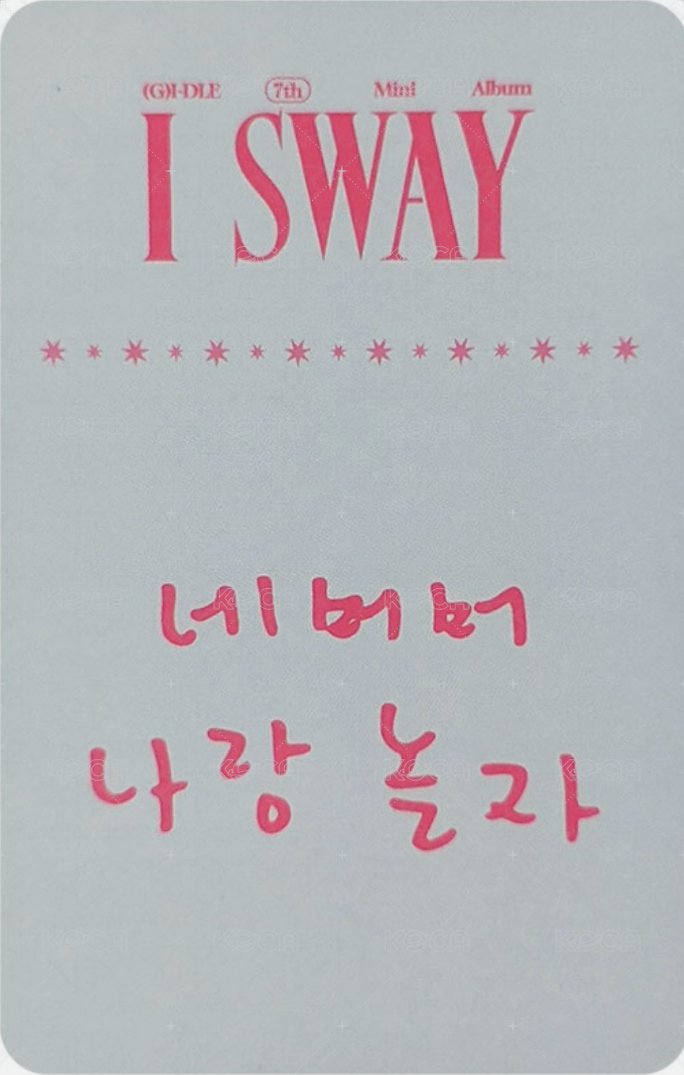 (G)I-DLE 7th Mini Album
I SWAY
네버버
나랑 놀자